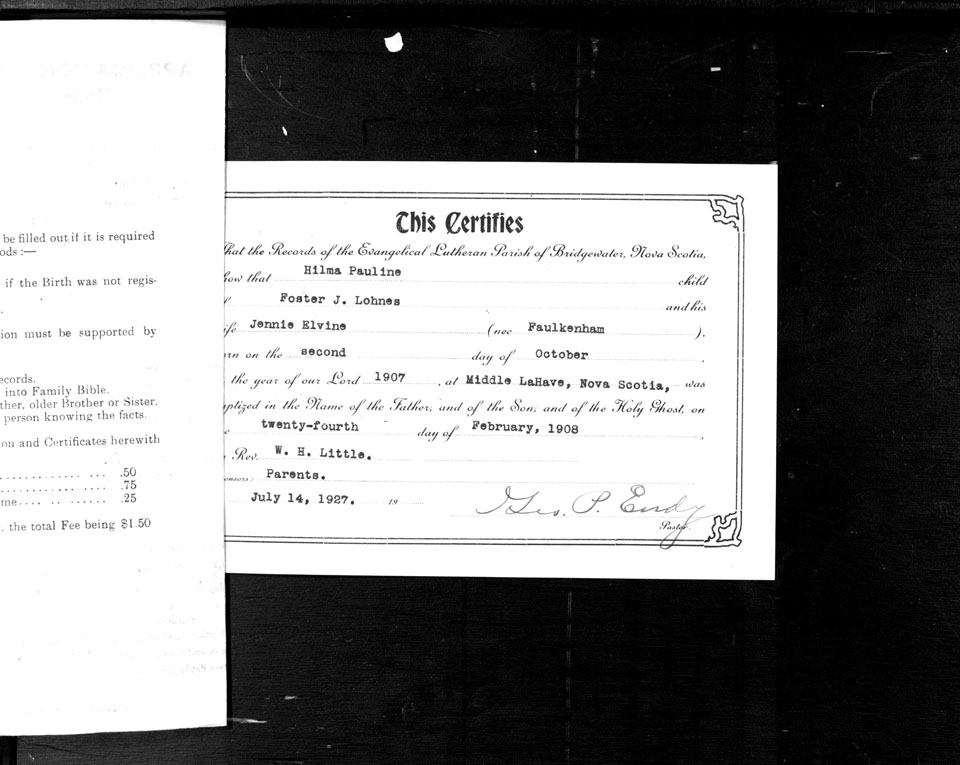 be filled out if it is required
ods :—
if the Birth was not regis-
ion must be supported by
ecords.
into Family Bible.
ther, older Brother or Sister.
person knowing the facts.
on and Certificates herewith
.50
.75
me .25
the total Fee being $1.50
This Certifies
hat the Records of the Evangelical Lutheran Parish of Bridgewater, Nova Scotia,
how that Hilma Pauline child
Foster J. Lohnes and his
ife Jennie Elvine (nee Faulkenham ).
rn on the second day of October .
the year of our Lord 1907 , at Middle LaHave, Nova Scotia, was
ptized in the Name of the Father; and of the Son; and of the Holy Ghost, on
e twenty-fourth day of February, 1908 .
Rev. W. H. Little.
onsors: Parents.
July 14, 1927. 19
Geo. P. Endy
Pastor.